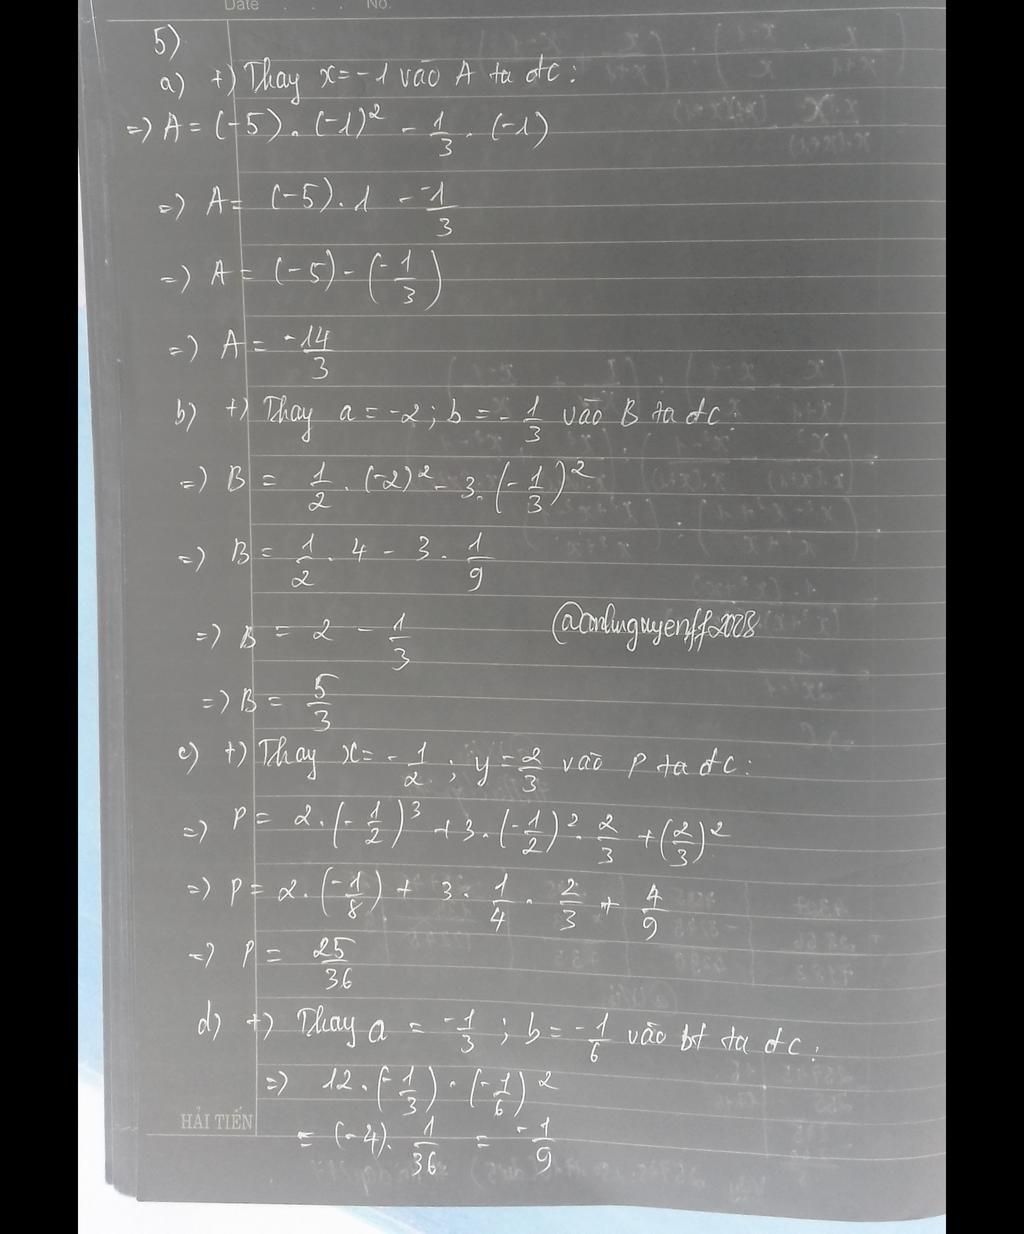 Date No.
5)
a) +) Thay x = -1 vào A ta đc:
=) A = (-5) . (-1)² - 1/3 . (-1)
=) A = (-5) . 1 - -1/3
=) A = (-5) - (-1/3)
=) A = -14/3
b) +) Thay a = -2 ; b = -1/3 vào B ta đc:
=) B = 1/2 . (-2)² - 3. (-1/3)²
=) B = 1/2 . 4 - 3 . 1/9
=) B = 2 - 1/3
@anhnguyenff2008
=) B = 5/3
c) +) Thay x = -1/2 ; y = 2/3 vào P ta đc:
=) P = 2. (-1/2)³ + 3. (-1/2)² . 2/3 + (2/3)²
=) P = 2. (-1/8) + 3. 1/4 . 2/3 + 4/9
=) P = 25/36
d) +) Thay a = -1/3 ; b = -1/6 vào bt ta đc:
=) 12 . (-1/3) . (-1/6)²
= (-4). 1/36 = -1/9
HẢI TIẾN